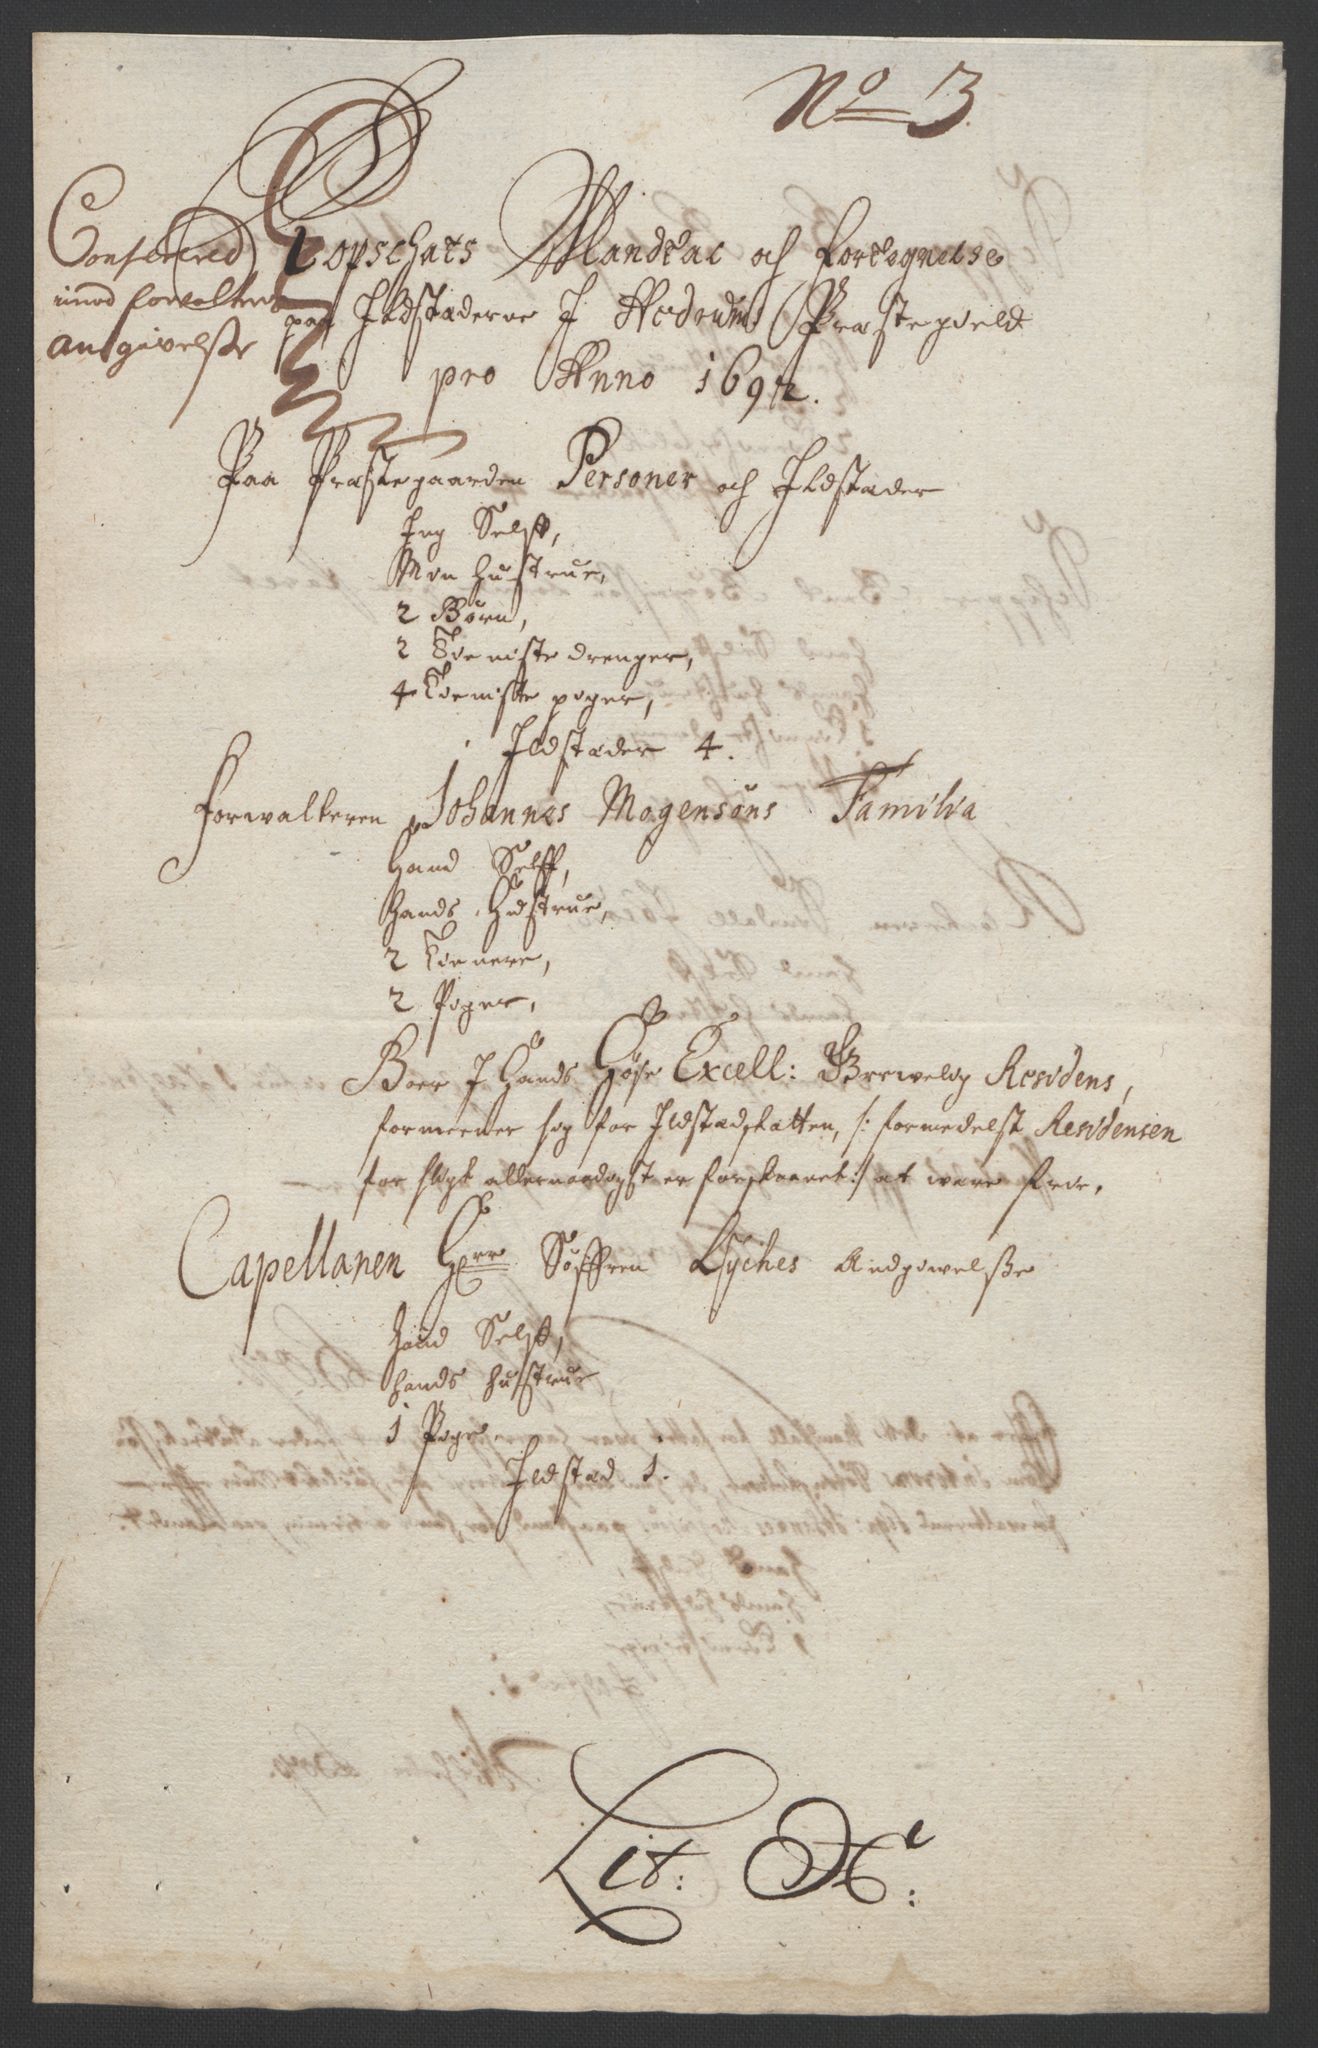 No 3
Conferered
imod forvalterens
angivelsse
Copschats Mandtal och fortegnelse
paa Ildstæderne I Hedrums Præstegield
pro Anno 1692.
Paa Præstegaarden Personer och Ildstæder
Jeg Selff,
Min hustrue,
2 Børn,
2 Tieniste drenger,
4 Tieniste piger,
Ildstæder 4.
Forvalteren Johannes Mogensøns Familia
Hand Selff,
Hands Hustrue,
2 Tienere,
2 Piger,
Boer I Hands Høye Excell: Grevelig Residens,
formeener sig for Ildstædskatten, /: formedelst Residensen
for sligt allernaadigst er forskaanet :/ at were frie.
Capellanen Herr Søffren Lyches Andgivelsse
Hand Selff,
hands hustrue
1 Pige.
Ildstæd 1.
Lit: